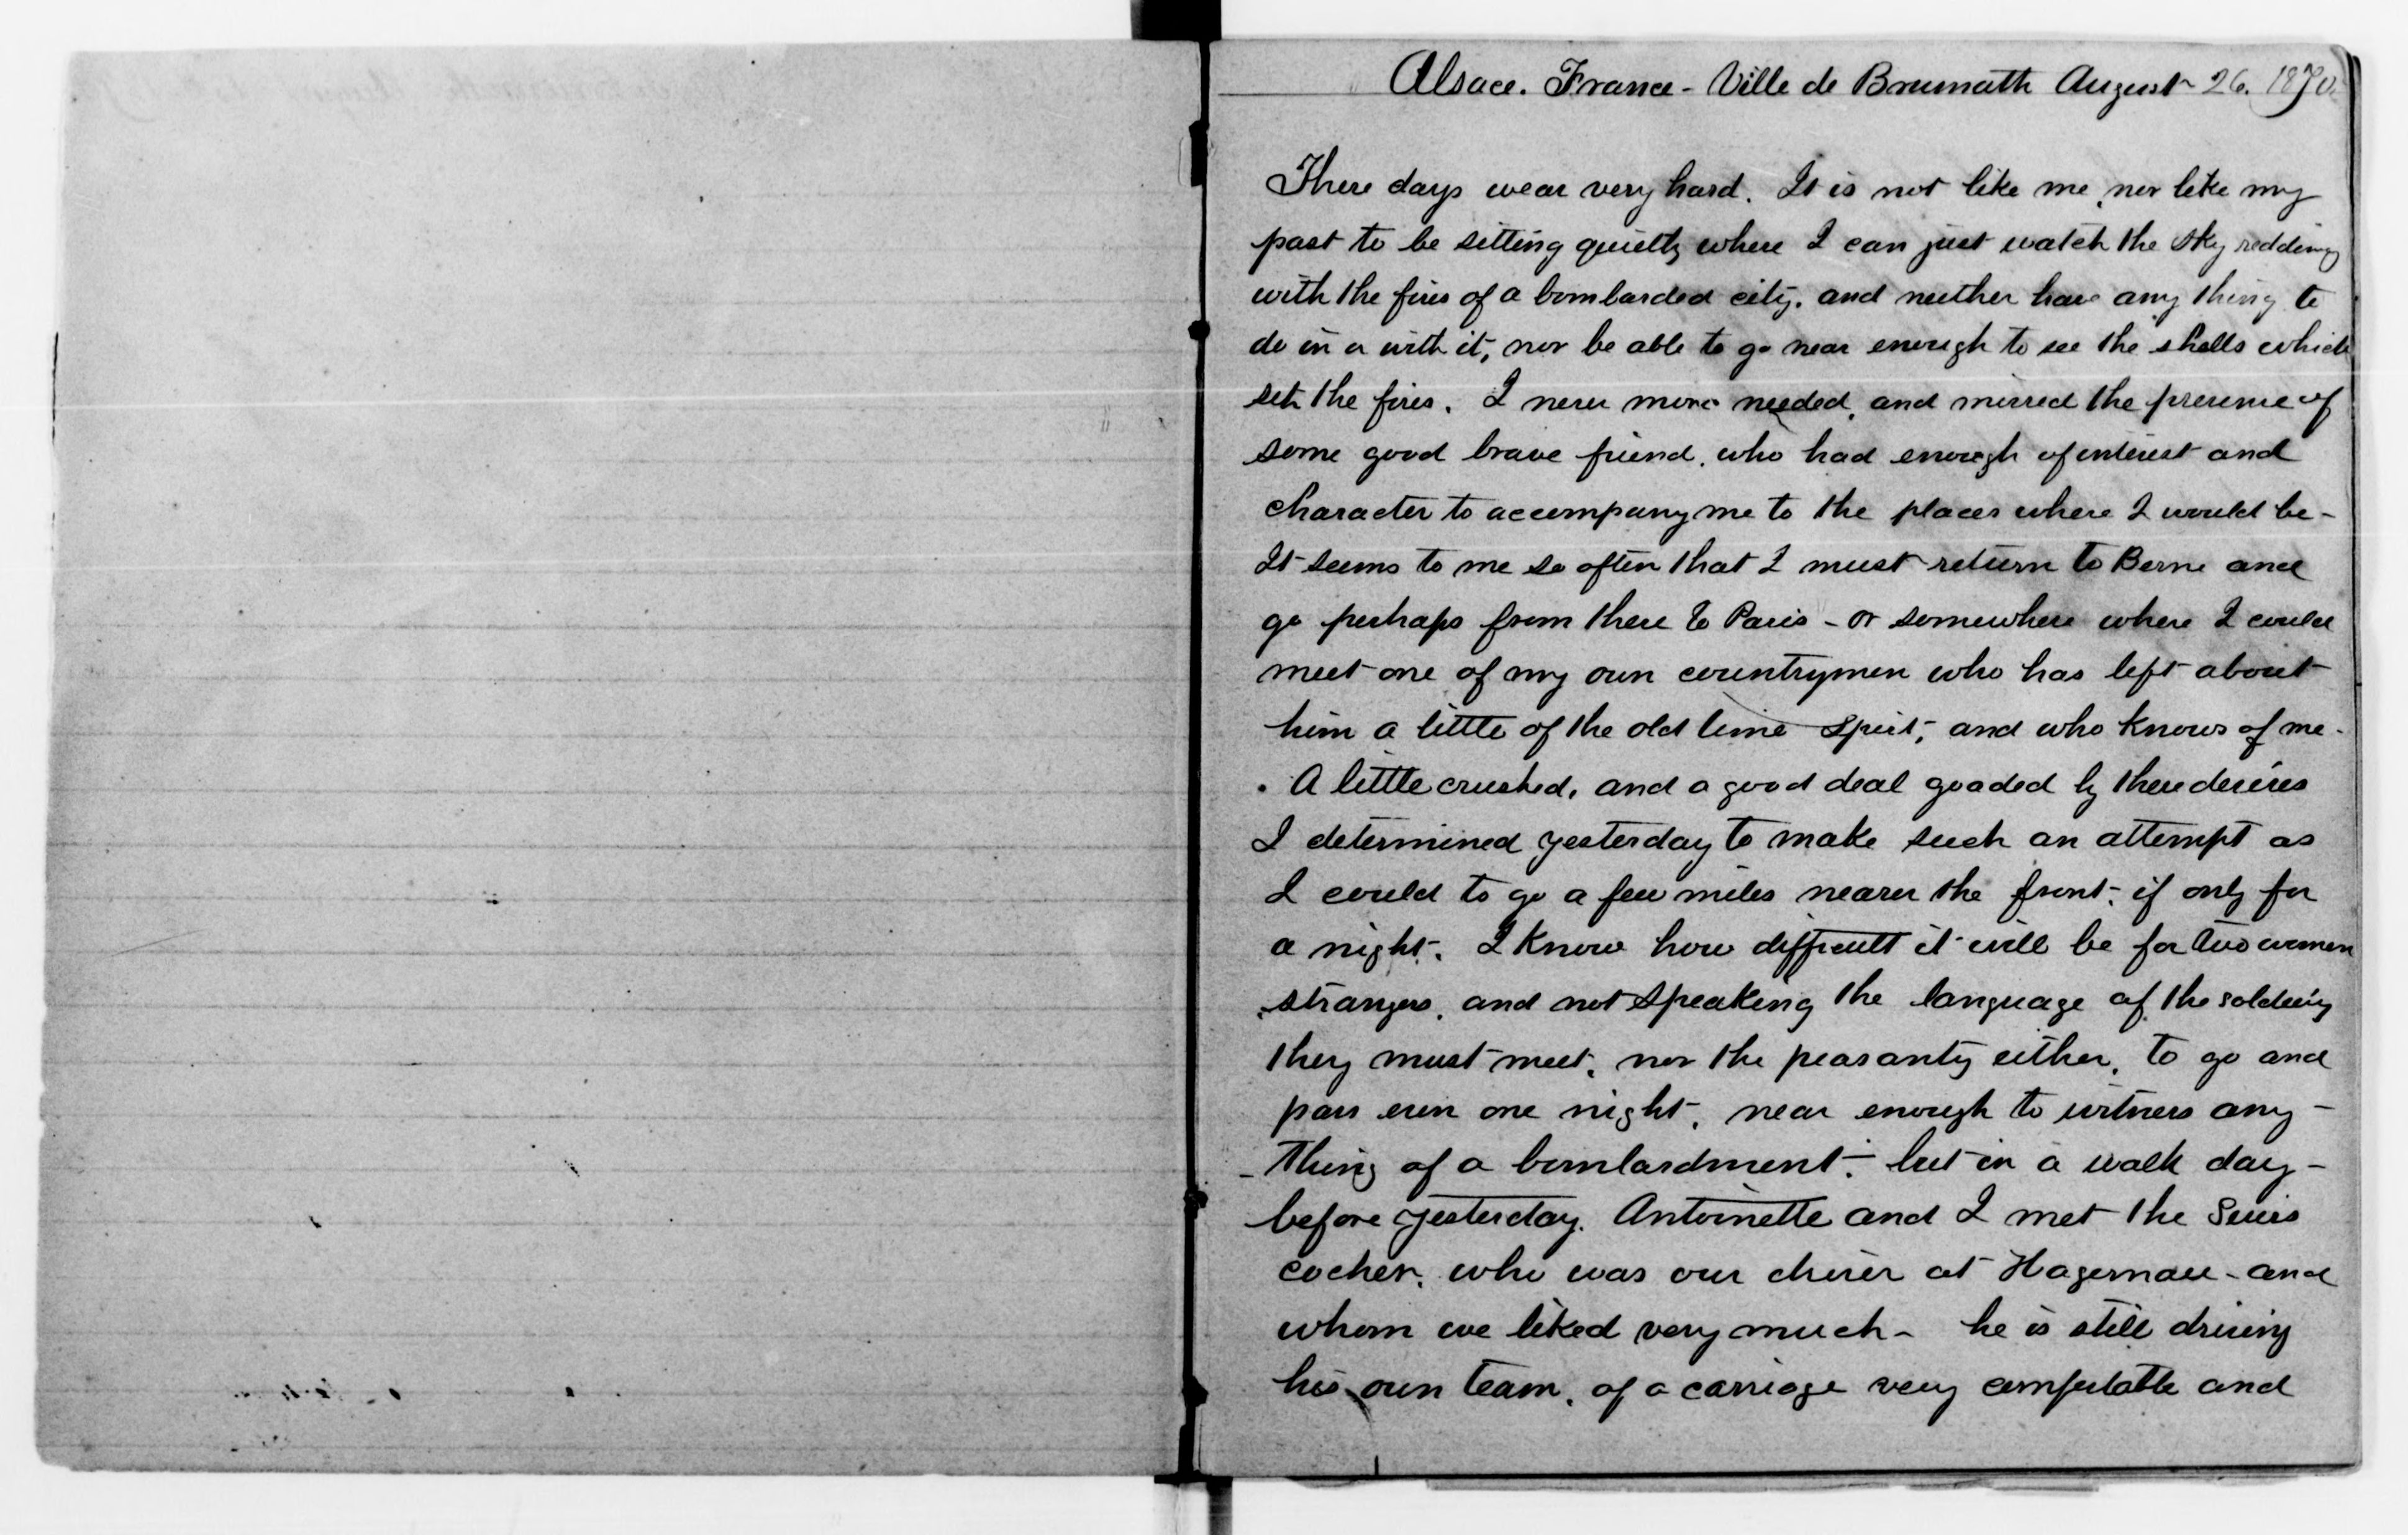 Alsace. France - Ville de Brumath August 26. 1870.
These days wear very hard. It is not like me, nor like my
past to be sitting quietly where I can just watch the sky redding
with the fires of a bombarded city. and neither have any thing to
do in or with it, nor be able to go near enough to see the shells which
set the fires. I never more needed, and missed the presence of
some good brave friend, who had enough of interest and
character to accompany me to the places where I would be -
It seems to me so often that I must return to Berne and
go perhaps from there to Paris - or somewhere where I could
meet one of my own countrymen who has left about
him a little of the old time spirit, and who knows of me -
. A little crushed, and a good deal goaded by these desires
I determined yesterday to make such an attempt as
I could to go a few miles nearer the front, if only for
a night. I know how difficult it will be for two women
strangers, and not speaking the language of the soldiery
they must meet, nor the peasantry either, to go and
pass even one night, near enough to witness any -
- thing of a bombardment; but in a walk day -
before yesterday. Antoinette and I met the Swiss
cocher, who was our driver at Hagernau - and
whom we liked very much - he is still driving
his own team, of a carriage very comfortable and